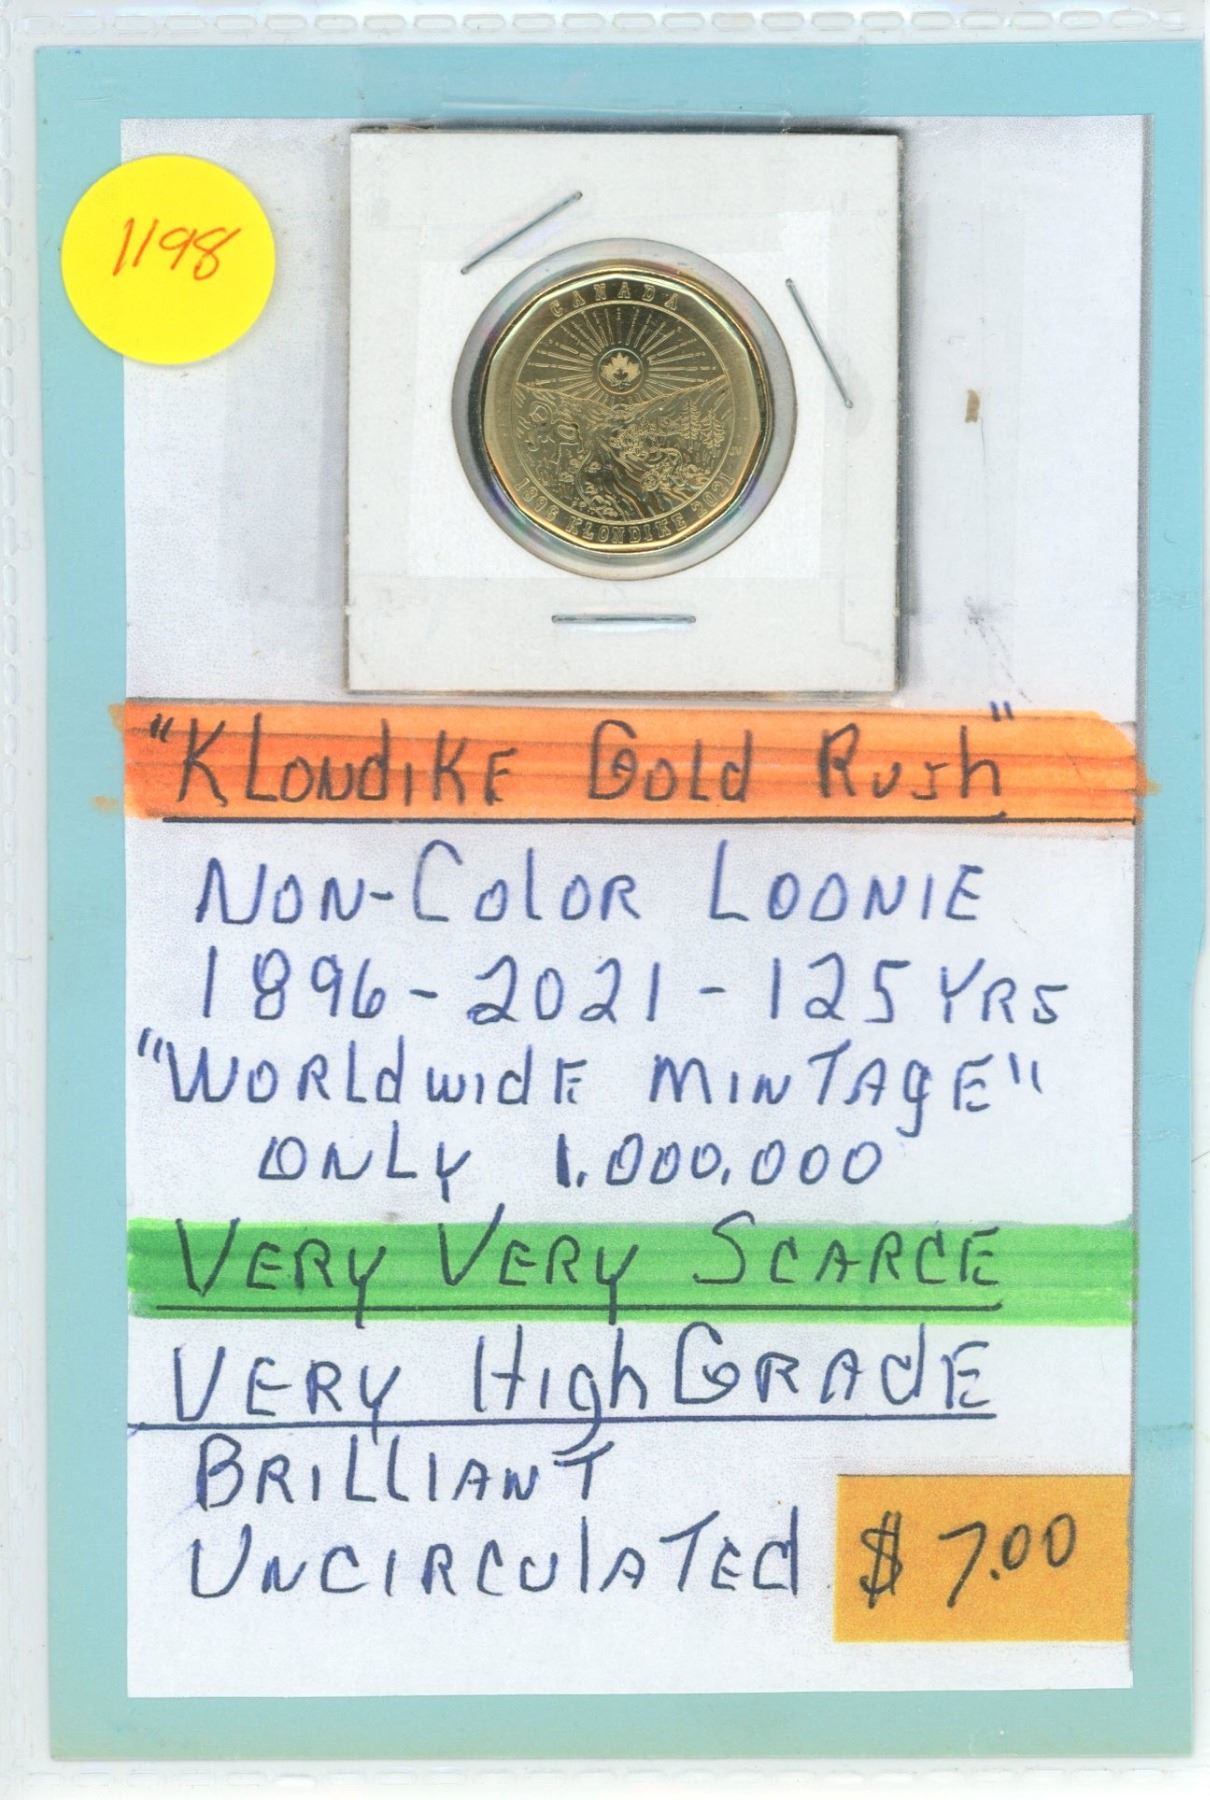 1198
CANADA
1896 KLONDIKE 2021
"KLONdIKE GOLd Rush"
NON-COlOR LOONIE
1896-2021-125 YRS
"WORLdwidE MINTAgE"
ONLY 1.000,000
VERY VERY SCARCE
VERY HighGRAdE
BRILLIANT
UNCIRCUlATEd
$7.00